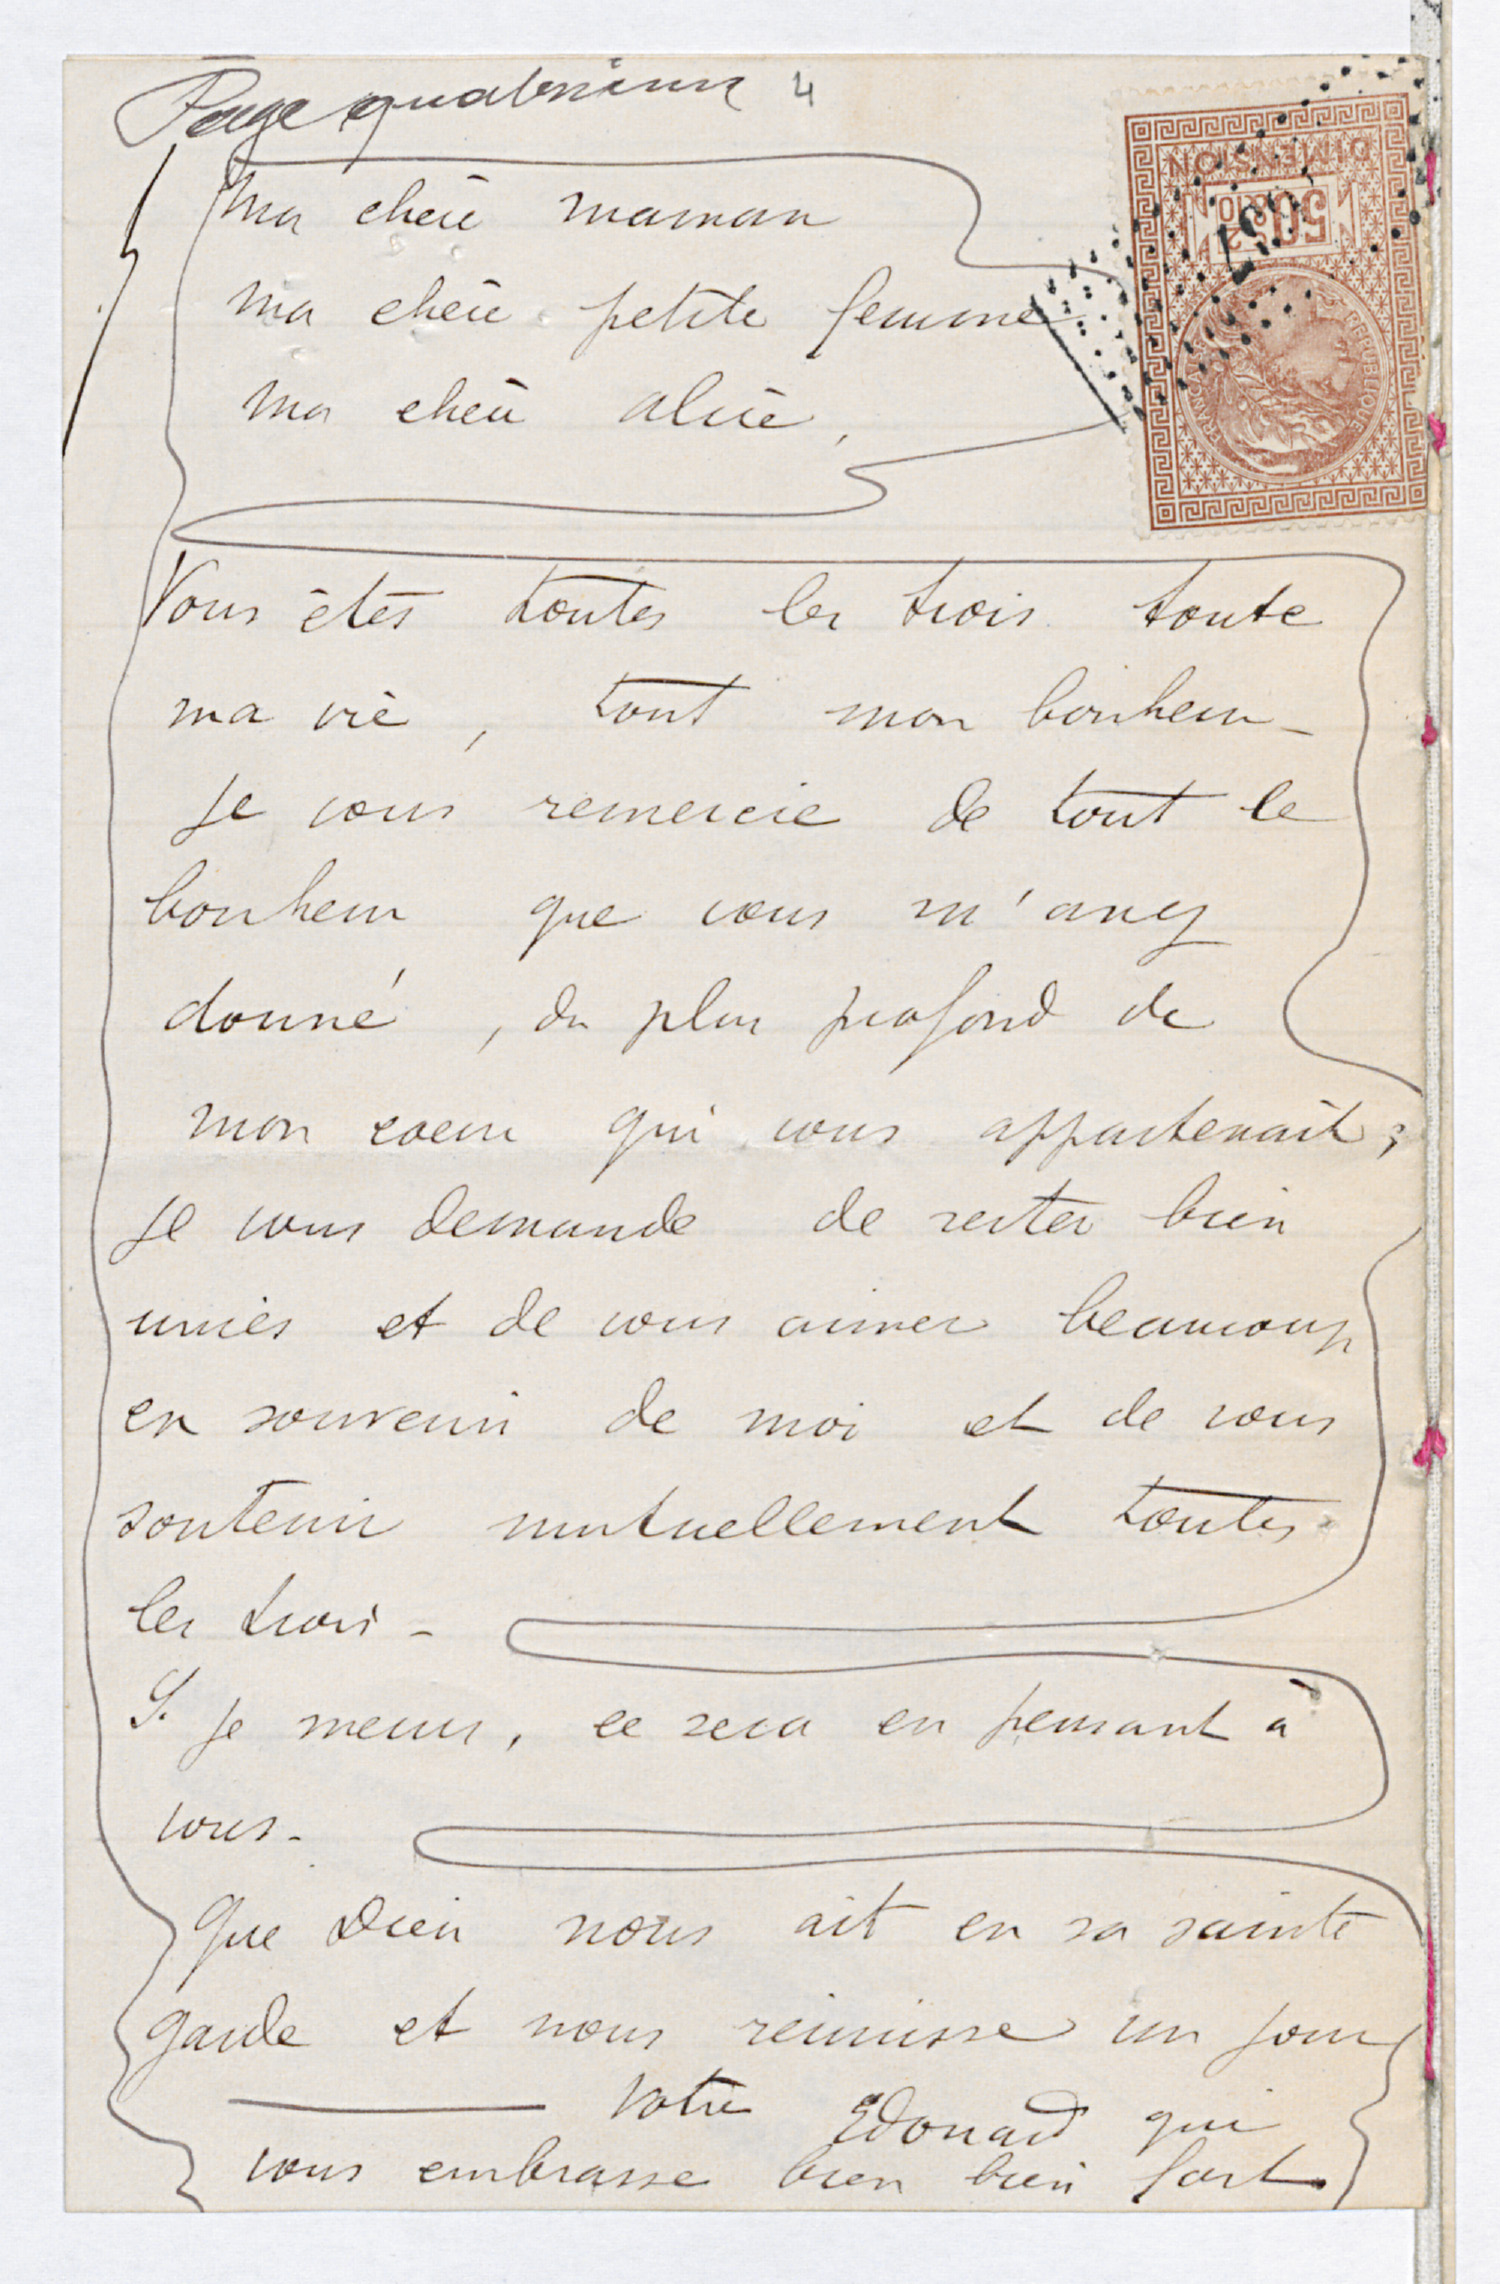 Page quatrième 4
Ma chère maman
ma chère petite femme
ma chère alice,
Vous êtes toutes les trois toute
ma vie, tout mon bonheur -
je vous remercie de tout le
bonheur que vous m'avez
donné, du plus profond de
mon coeur qui vous appartenait;
je vous demande de rester bien
unies et de vous aimer beaucoup
en souvenir de moi et de vous
soutenir mutuellement toutes
les trois -
Si je meurs, ce sera en pensant à
vous -
Que Dieu nous ait en sa sainte
garde et nous réunisse un jour
Votre Edouard qui
vous embrasse bien bien fort.
DIMENSION
50c
2/10
REPUBLIQUE FRANÇAISE